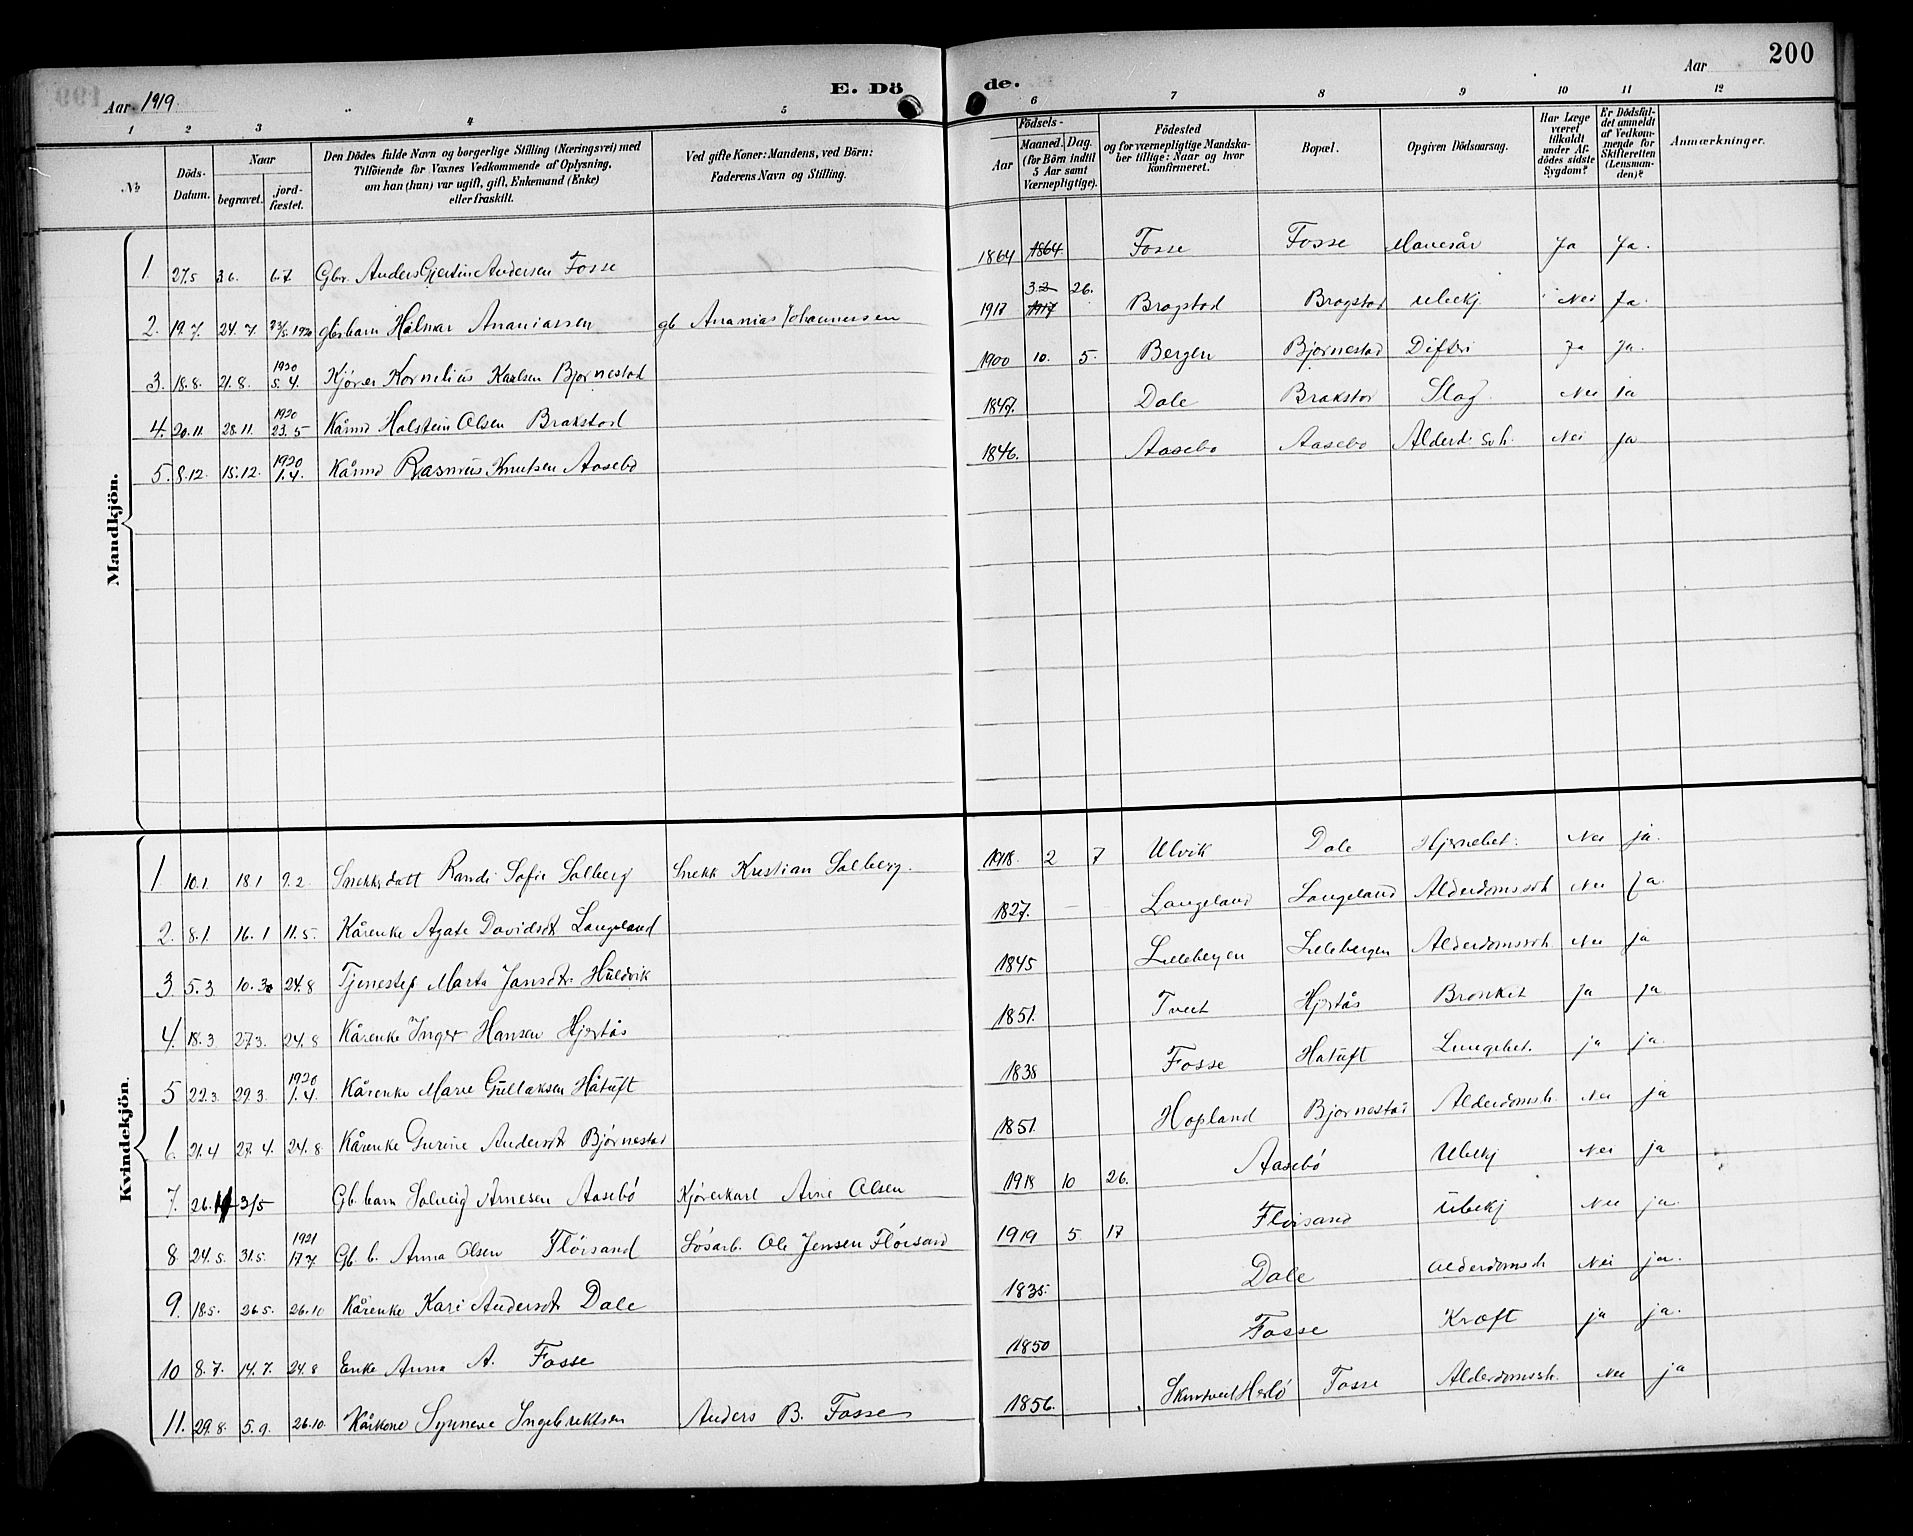 Aar 1919.
E. Dö
de.
Aar
200
1 2 3 4 5 6 7 8 9 10 11 12
No
Döds-Datum.
Naar
begravet.
jord-fæstet.
Den Dödes fulde Navn og borgerlige Stilling (Næringsvei) med
Tilföiende for Voxnes Vedkommende af Oplysning,
om han (hun) var ugift, gift, Enkemand (Enke)
eller fraskilt.
Ved gifte Koner: Mandens, ved Börn:
Faderens Navn og Stilling.
Födsels-
Aar
Maaned. Dag.
(for Börn indtil
5 Aar samt
Værnepligtige).
Födested
og for værnepligtige Mandska-
ber tillige: Naar og hvor
konfirmeret.
Bopæl.
Opgiven Dödsaarsag.
Har Læge
været
tilkaldt
under Af-
dödes sidste
Sygdom?
Er Dödsfal-
det anmeldt
af Vedkom-
mende for
Skifteretten
(Lensman-
den)?
Anmærkninger.
Mandkjön.
1. 27.5 3.6. 6.7 Gbr. Anders Gjertin Andersen Fosse 1864 1864 Fosse Fosse Mavesår Ja Ja.
2. 19.7. 24.7. 23/5.1920 gbsbarn Halmar Ananiassen gb Ananias Johannessen 1917 3.2 1917 26. Bragstad Bragstad Ubekj. Nei Ja.
3. 18.8. 21.8. 1920 5.4. Kjörer Kornelius Karlsen Bjornestad 1900 10. 5. Bergen Bjornestad Difteri Ja Ja.
4. 20.11. 28.11. 1920 23.5 Kårmd Holstein Olsen Brakstad 1847. Dale Brakstad Slag. Nei ja
5. 8.12. 15.12. 1920 1.4. Kårmd Rasmus Knutsen Aasebø 1846. Aasebo Aasebo Alderd. svh. Nei ja
Kvindekjön.
1 10.1. 18.1 9.2. Snekksdatt Randi Sofie Solberg Snekk Kristian Solberg. 1918. 2 7 Ulvik Dale Hjernebet. Nei ja.
2. 8.1. 16.1 11.5. Kårenke Agate Davidsdt Langeland 1827. Langeland Langeland Alderdomssvh Nei Ja.
3. 5.3 10.3. 24.8 Tjenestep Marta Jansdt. Huldvik 1845 Lillebergen Lillebergen Alderdomssvh. Nei ja
4. 18.3 27.3. 24.8 Kårenke Inger Hansen Hjertås 1851. Tveit Hjertås Bronkit ja ja
5 22.3. 29.3. 1920 1.4. Kårenke Marie Gullaksen Håtuft 1838 Fosse Hatuft Lungebet. ja ja.
6. 21.4 27.4. 24.8. Kårenke Gurine Andersdt Bjørnestad 1851. Hopland Bjornestad Alderdomsh. Nei ja
7. 26. 3/5 Gb. barn Solveig Arnesen Aasebö Kjörerkarl Arne Olsen 1918 10 26. Aasebø Ubekj Nei ja
8. 24.5. 31.5. 1921 17.7. Gb. b. Anna Olsen Flörsand Løsarb. Ole Jensen Flörsand 1919 5 17 Floisand Ubekj Nei ja.
9. 18.5. 26.5. 26.10 Kårenke Kari Andersdt Dale 1835. Dale alderdomsvh Nei ja.
10 8.7. 14.7. 24.8 Enke Anna A. Fosse 1850 Fosse Kræft ja ja.
11. 29.8. 5.9. 26.10. Kårkone Synneve Ingebrektsen Anders B. Fosse 1856. Skurtveit Herlø Fosse Alderdomssvh. Nei ja